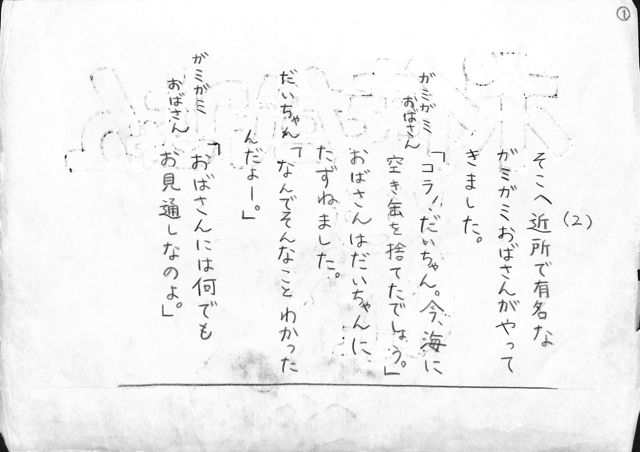 ①
(2)
そこへ近所で有名な
ガミガミおばさんがやって
きました。
ガミガミ
おばさん
「コラ!だいちゃん。今、海に
空き缶を捨てたでしょう。」
おばさんはだいちゃんに
たずねました。
だいちゃん「なんでそんなことわかった
んだよー。」
ガミガミ
おばさん
「おばさんには何でも
お見通しなのよ。」